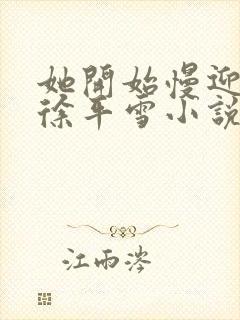 她開始慢迎
徐平雪小說
江雨涔